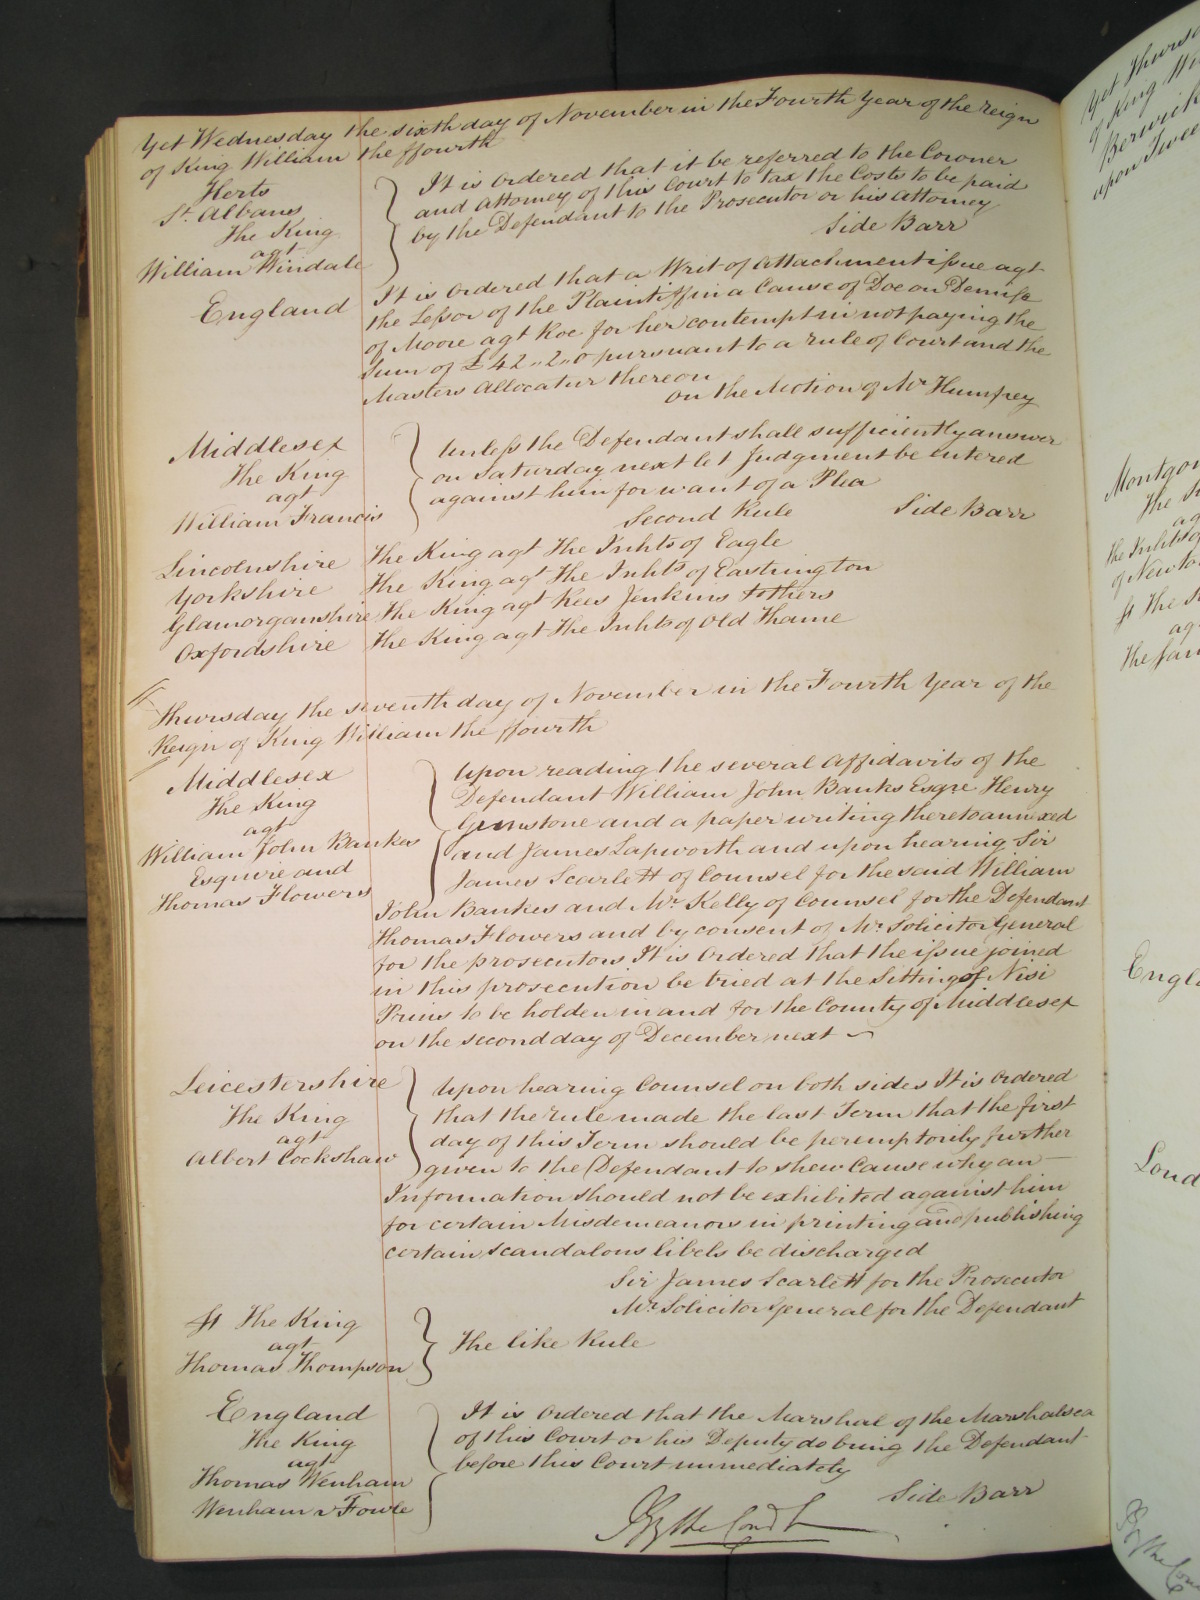 Yet Wednesday the sixth day of November in the Fourth Year of the reign
of King William the ffourth
Herts
St. Albans
The King
agt
William Windale
It is ordered that it be referred to the Coroner
and Attorney of this Court to tax the Costs to be paid
by the Defendant to the Prosecutor or his Attorney
Side Barr
England
It is ordered that a Writ of Attachment issue agt
the Lessor of the Plaintiff in a Cause of Doe on Demise
of Moore agt Roe for her contempt in not paying the
Sum of £42,,2,,0 pursuant to a rule of Court and the
Masters Allocatur thereon
on the Motion of Mr Humfrey
Middlesex
The King
agt
William Francis
Unless the Defendant shall sufficiently answer
on Saturday next let Judgment be entered
against him for want of a Plea
Second Rule Side Barr
Lincolnshire The King agt The Inhts of Eagle
Yorkshire The King agt The Inhts of Eastrington
Glamorganshire The King agt Rees Jenkins & others
Oxfordshire The King agt The Inhts of Old Thame
Thursday the seventh day of November in the Fourth Year of the
Reign of King William the ffourth
Middlesex
The King
agt
William John Bankes
Esquire and
Thomas Flowers
Upon reading the several affidavits of the
Defendant William John Banks Esqre Henry
Grimstone and a paper writing thereto annexed
and James Lapworth and upon hearing Sir
James Scarlett of Counsel for the said William
John Bankes and Mr. Kelly of Counsel for the Defendant
Thomas Flowers and by consent of Mr. Solicitor General
for the prosecutors It is Ordered that the issue joined
in this prosecution be tried at the Sitting of Nisi
Prius to be holden in and for the County of Middlesex
on the second day of December next
Leicestershire
The King
agt
Albert Cockshaw
Upon hearing Counsel on both sides It is ordered
that the rule made the last Term that the first
day of this Term should be peremptorily further
given to the Defendant to shew Cause why an
Information should not be exhibited against him
for certain Misdemeanors in printing and publishing
certain scandalous libels be discharged
Sir James Scarlett for the Prosecutor
Mr. Solicitor General for the Defendant
St The King
agt
Thomas Thompson
The like Rule
England
The King
agt
Thomas Wenham
Wenham v Fowle
It is Ordered that the Marshal of the Marshalsea
of this Court or his Deputy do bring the Defendant
before this Court immediately
Side Barr
By the Court
Yet Thursd
of King Wi
Berwick
upon Twee
Montgom
The K
ag
The Inhts of
of Newto
St The K
ag
The Sam
Engla
Lond
By the Cou